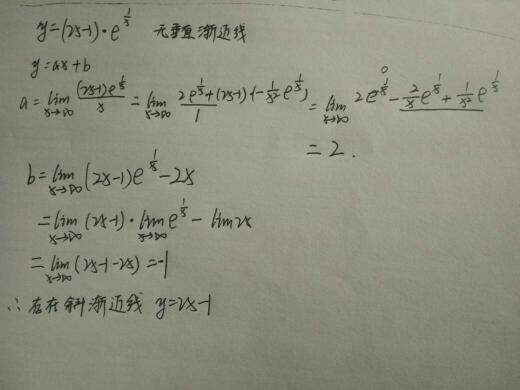 y=(2x-1)·e^{1/x} 无垂直渐近线
y=ax+b
a=lim_{x→∞} \frac{(2x-1)e^{1/x}}{x} = lim_{x→∞} \frac{2e^{1/x}+(2x-1)(-\frac{1}{x²}e^{1/x})}{1} = lim_{x→∞} 2e^{1/x}-\frac{2}{x}e^{1/x}+\frac{1}{x²}e^{1/x}
=2.
b=lim_{x→∞}(2x-1)e^{1/x}-2x
=lim_{x→∞}(2x-1)·lim_{x→∞}e^{1/x}-lim2x
=lim_{x→∞}(2x-1-2x)=-1
∴存在斜渐近线 y=2x-1